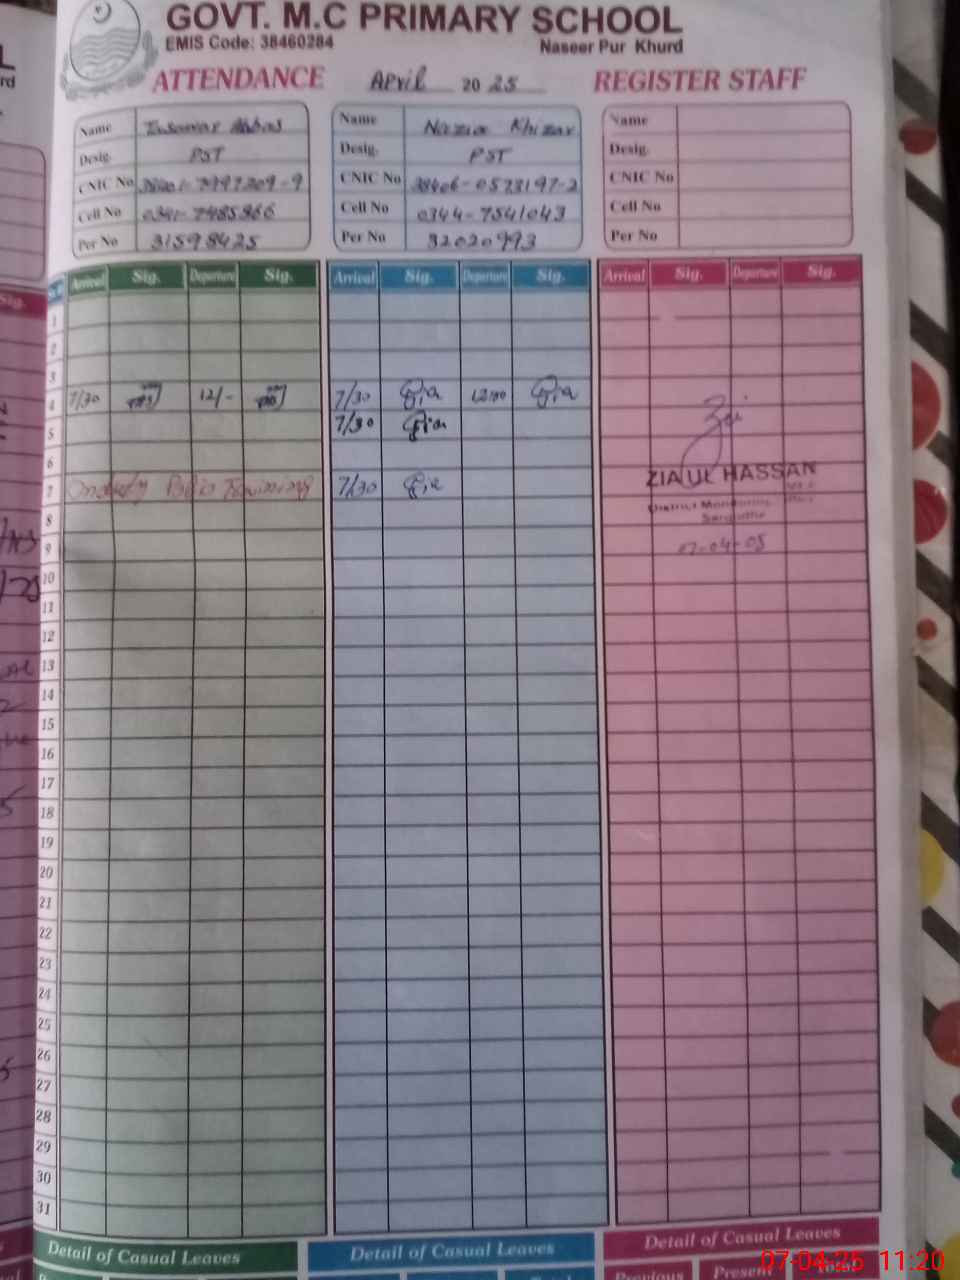 GOVT. M.C PRIMARY SCHOOL
EMIS Code: 38460284
Naseer Pur Khurd
ATTENDANCE April 2025 REGISTER STAFF
Name Tasawar Abbas
Desig. PST
CNIC No
Cell No
Per No 31598425
Name Nazia Khizar
Desig. PST
CNIC No 38406-0573197-2
Cell No 0344-7541043
Per No 32020993
Name
Desig.
CNIC No
Cell No
Per No
Arrival Sig. Departure Sig. Arrival Sig. Departure Sig. Arrival Sig. Departure Sig.
1
2
3
4 7/30 12/- 7/30 12:00
5 7/30
6
7 Onduty Polio Training 7/30
ZIA UL HASSAN
District
8
9
10
11
12
13
14
15
16
17
18
19
20
21
22
23
24
25
26
27
28
29
30
31
Detail of Casual Leaves Detail of Casual Leaves Detail of Casual Leaves
Previous Present Total
07-04-25 11:20